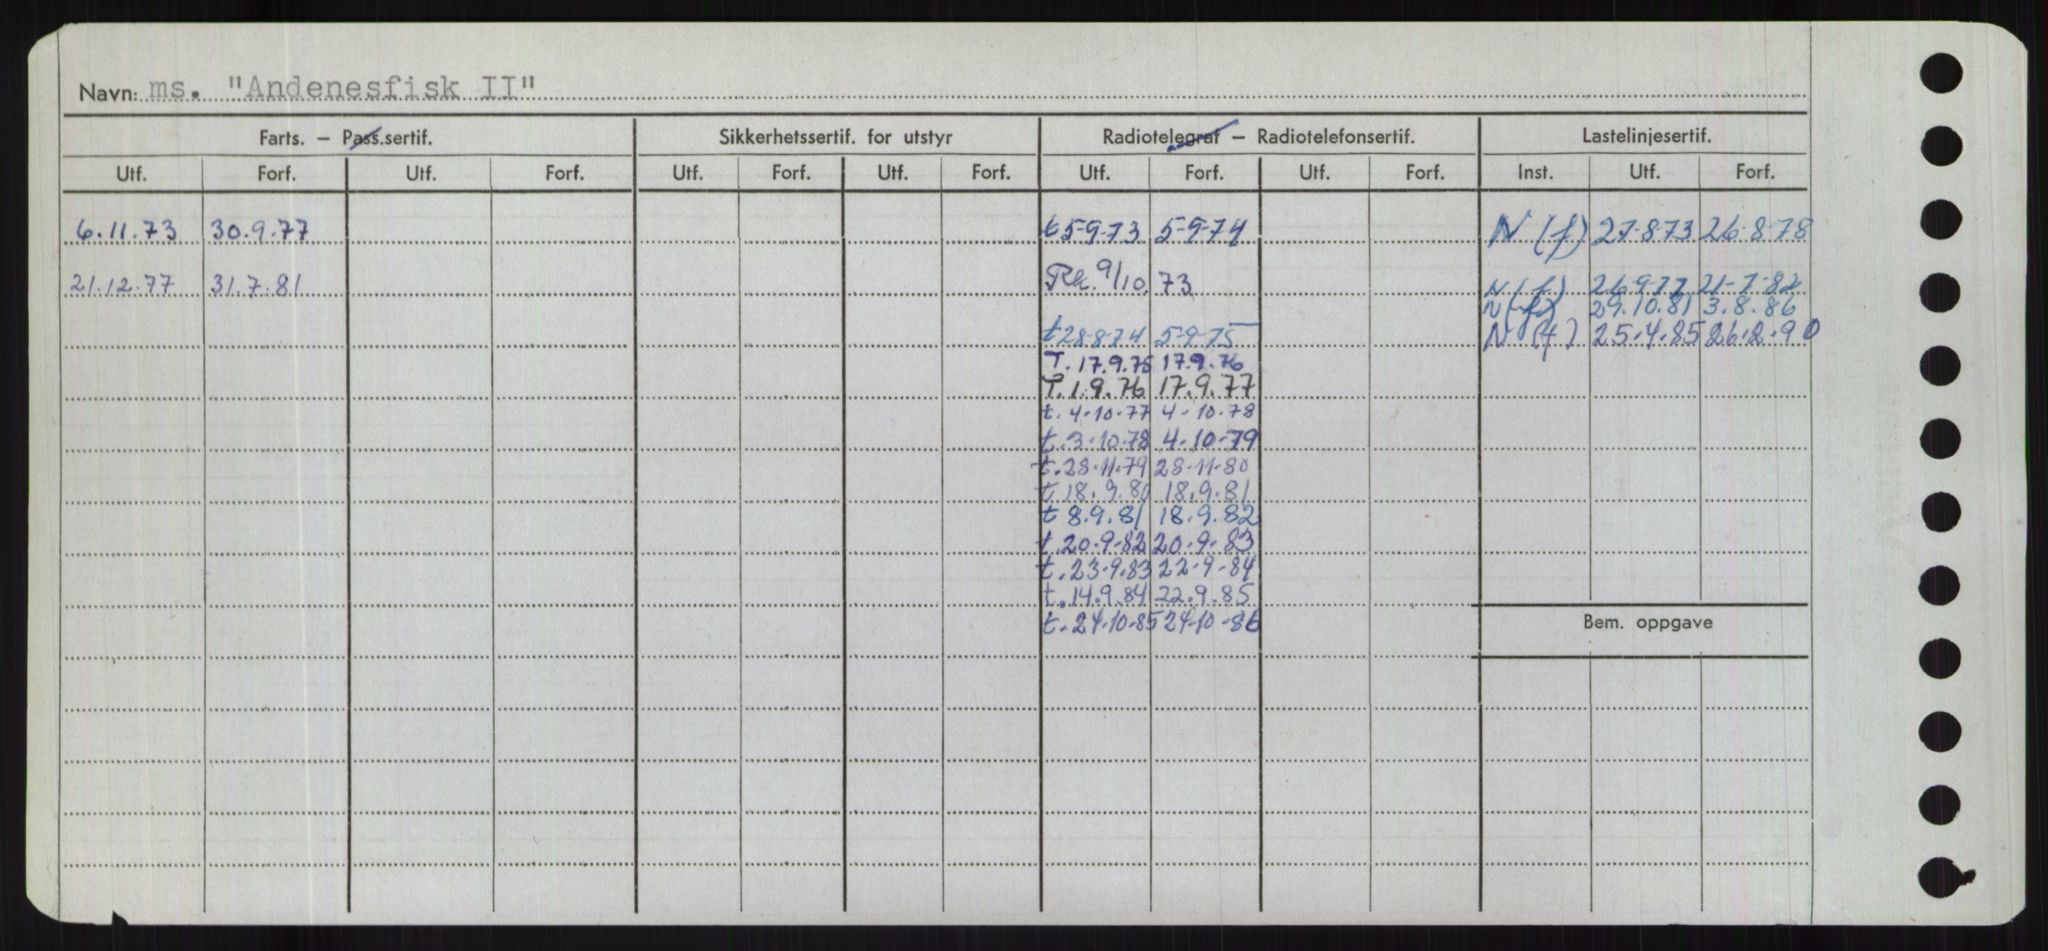 Navn: ms. "Andenesfisk II"
Farts. – Pass.sertif. Sikkerhetssertif. for utstyr Radiotelegraf – Radiotelefonsertif. Lastelinjesertif.
Utf. Forf. Utf. Forf. Utf. Forf. Utf. Forf. Utf. Forf. Utf. Forf. Inst. Utf. Forf.
6.11.73 30.9.77 t 5-9-73 5-9-74 N (f) 27-8-73 26-8-78
21.12.77 31.7.81 9/10 73 N (f) 26-9-77 21-7-82
N (f) 29.10.81 3.8.86
t 28-8-74 5-9-75 N (f) 25.4.85 26.2.90
T. 17.9.75 17.9.76
T. 1.9.76 17.9.77
t. 4-10-77 4-10-78
t. 3-10-78 4-10-79
t. 28-11-79 28-11-80
t 18.9.80 18.9.81
t 8.9.81 18.9.82
t. 20-9-82 20-9-83
t. 23-9.83 22-9-84
t. 14.9.84 22.9.85
t. 24-10-85 24-10-86
Bem. oppgave